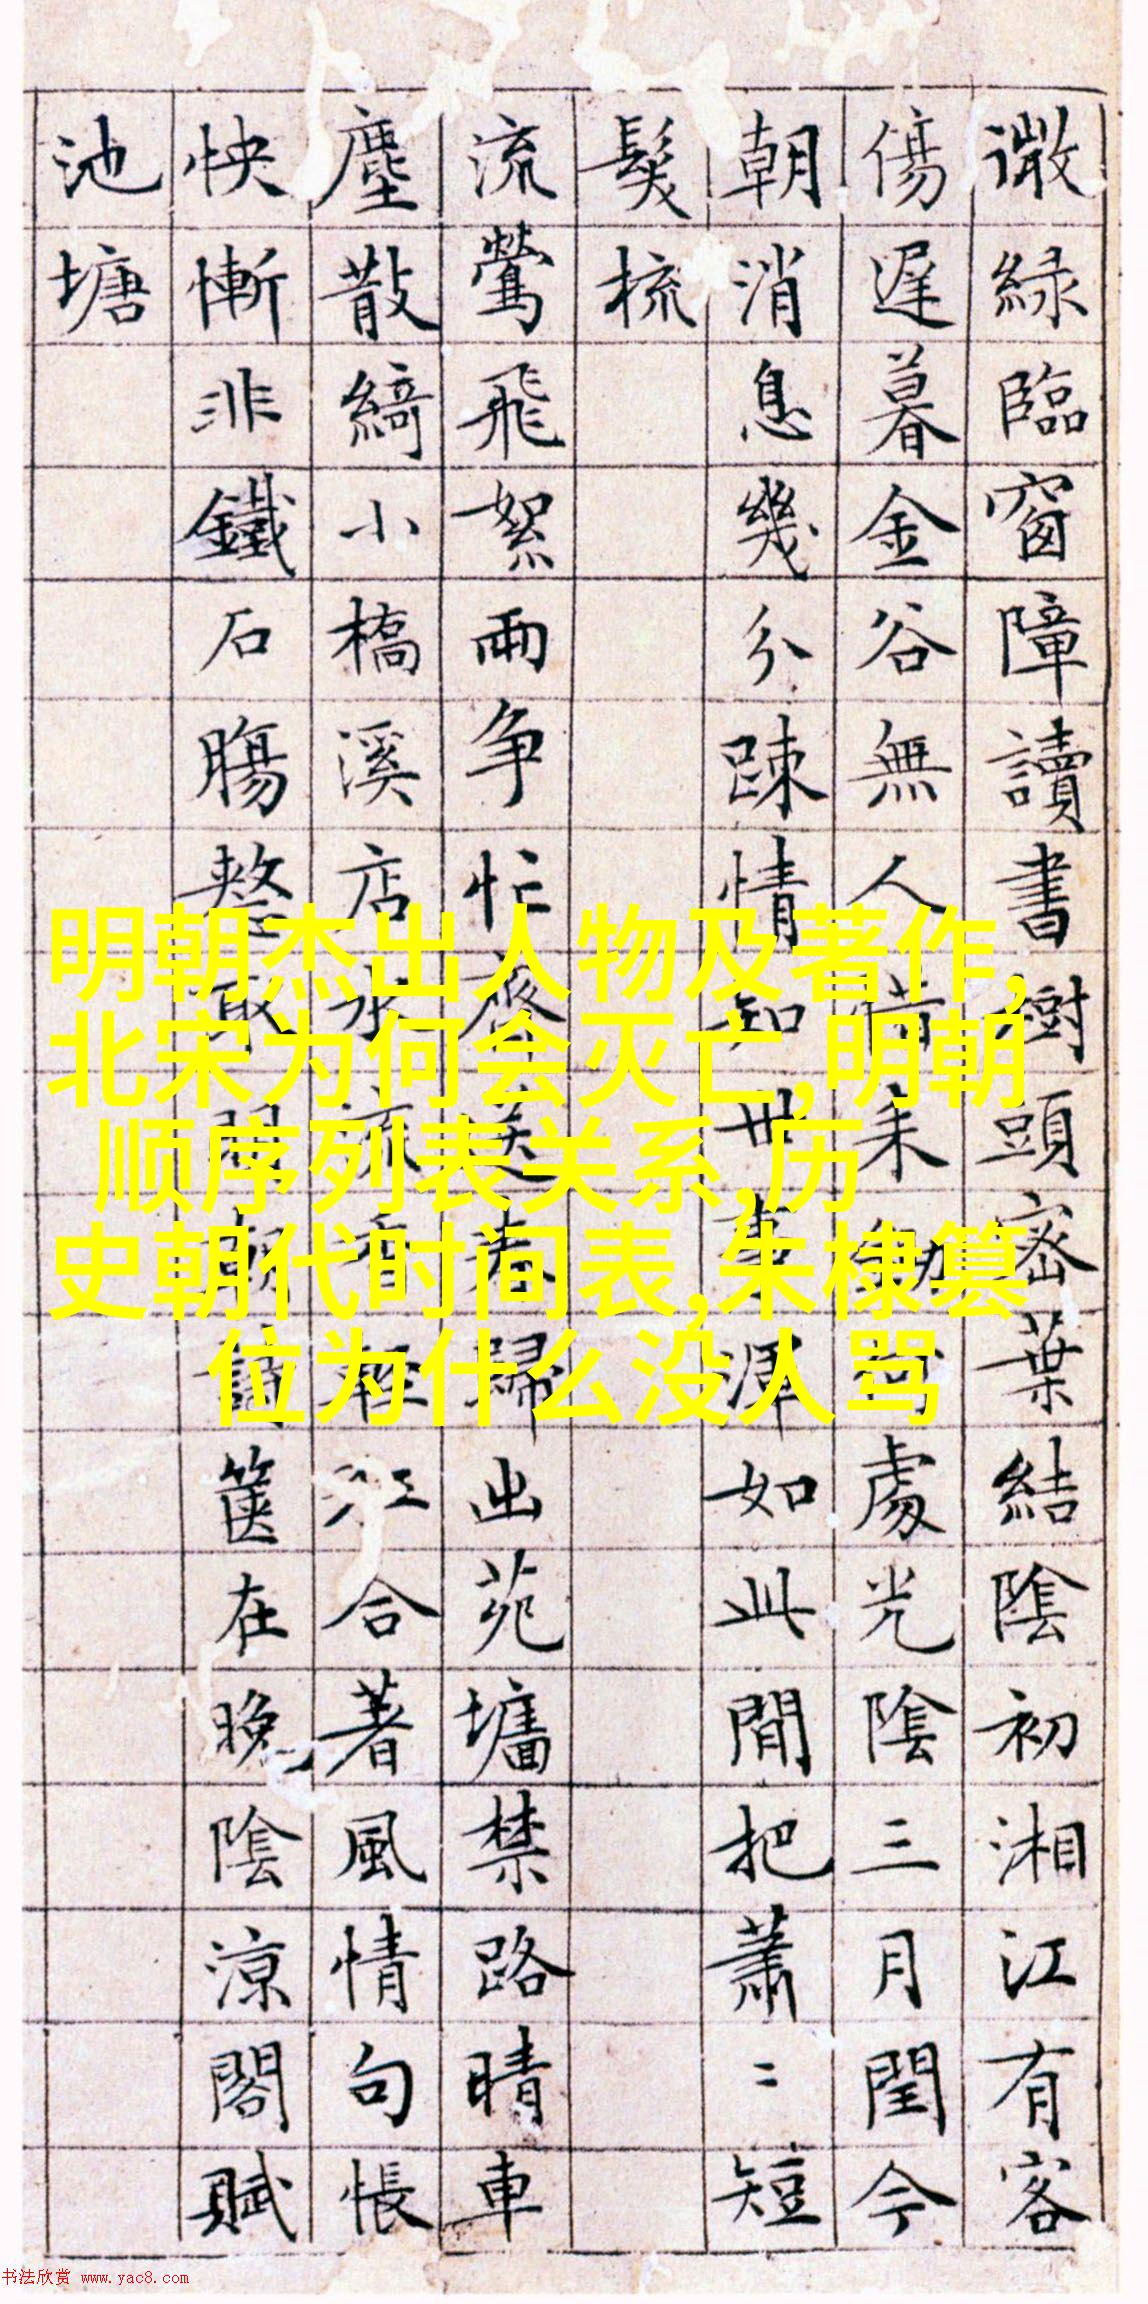 微綠臨窗障讀書樹頭密葉結陰初湘江有客
傷遲暮金谷無人未何處光陰三月閏今
朝消息幾分疎情知世事渾如此間把蕭〻短
髮梳
流鶯飛絮兩争忙齊送春歸出苑墻禁路晴車
塵散綺小橋溪店水流香輕江合著風情句悵
怏慚非鐵石腸取朝詩篋在晚陰涼閣賦
池塘
明朝杰出人物及著作,
北宋为何会灭亡,明朝
顺序列表关系,历
史朝代时间表,朱棣篡
位为什么没人骂
书法欣赏 www.yac8.com